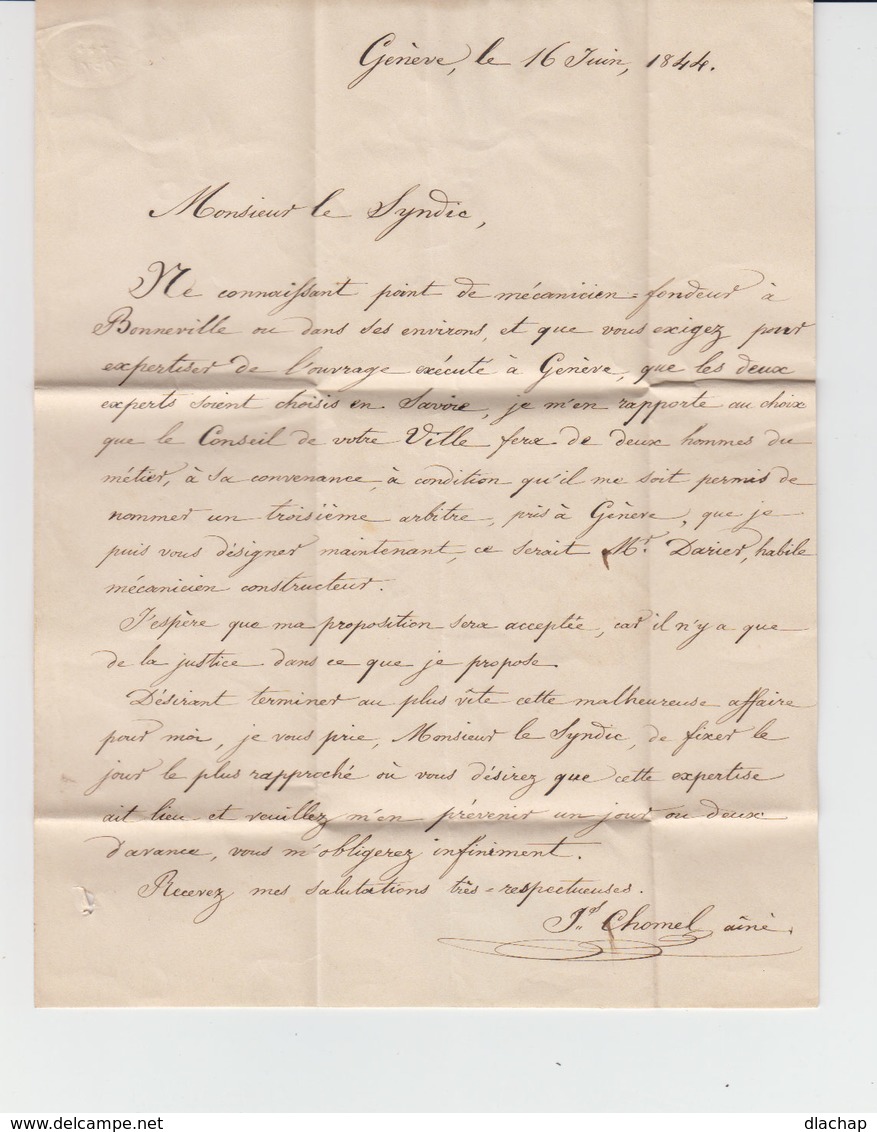 Genève, le 16 Juin, 1844.
Monsieur le Syndic,
Ne connaissant point de mécanicien=fondeur à
Bonneville ou dans ses environs, et que vous exigez pour
expertiser de l'ouvrage exécuté à Genève, que les deux
experts soient choisis en Savoie, je m'en rapporte au choix
que le Conseil de votre Ville fera de deux hommes du
métier, à sa convenance, à condition qu'il me soit permis de
nommer un troisième arbitre, pris à Genève, que je
puis vous désigner maintenant, ce serait Mr. Darier, habile
mécanicien constructeur.
J'espère que ma proposition sera acceptée, car il n'y a que
de la justice dans ce que je propose.
Désirant terminer au plus vîte cette malheureuse affaire
pour moi, je vous prie, Monsieur le Syndic, de fixer le
jour le plus rapproché où vous désirez que cette expertise
ait lieu et veuillez m'en prévenir un jour ou deux
d'avance, vous m'obligerez infiniment.
Recevez mes salutations très=respectueuses.
Chomel aîné.
www.delcampe.net
dlachap